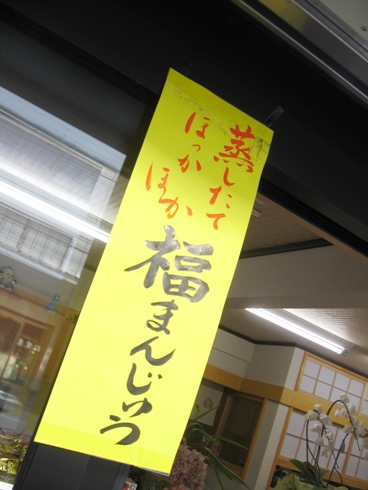 蒸したて
ほっか
ほか
福まんじゅう